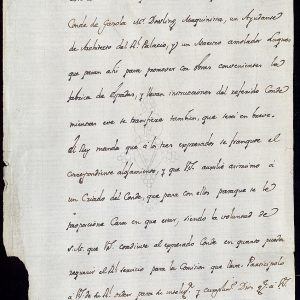 Conde de Gazola Mr. Dowling Maquinista, un Ayudante
de Architecto del Rl. Palacio, y un Maestro amolador Lugues
que pasan ahí para promover con obras convenientes la
fabrica de Espadas, y llevan instrucciones del referido Conde
mientras este se transfiere tambien, que será en breve.
El Rey manda que a los tres expresados se franquee el
correspondiente alojamiento, y que V.S. auxilie asimismo a
un Criado del Conde, que pasa con ellos para que se le
proporcione Casa en que estar, siendo la voluntad de
S.M. que V.S. coadiuve al expresado Conde en quanto pueda
requerir el Rl. servicio para la Comision que lleve. Participolo
a V.S. de Rl. orden para su intelig.a y cumplim.to Dios g.e a V.S.